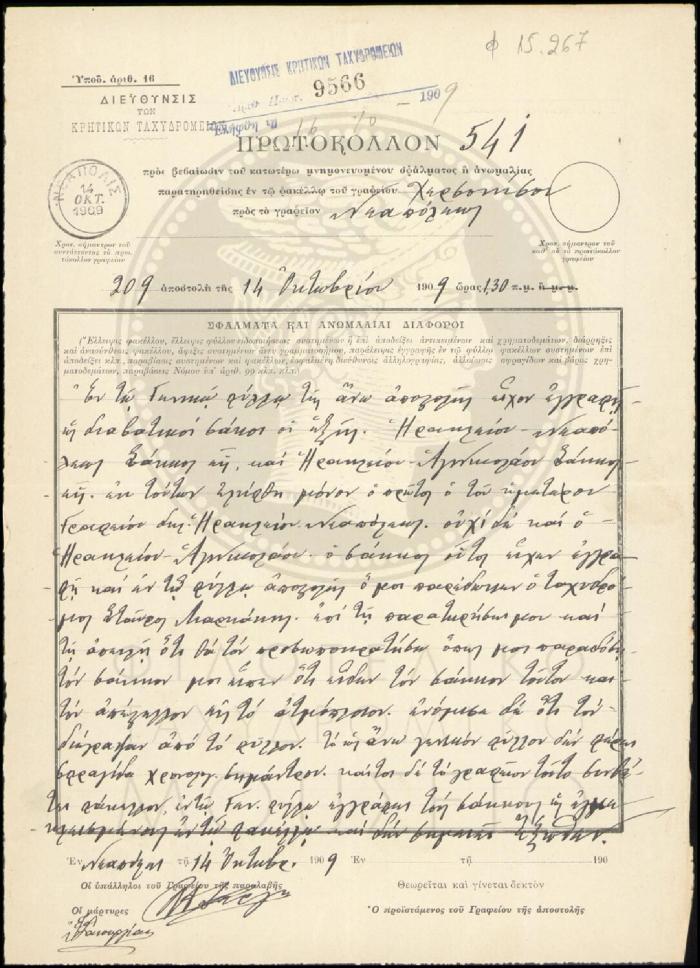 φ 15.267
Ὑπόδ. ἀριθ. 16
ΔΙΕΥΘΥΝΣΙΣ
ΤΩΝ
ΚΡΗΤΙΚΩΝ ΤΑΧΥΔΡΟΜΕΙΩΝ
ΔΙΕΥΘΥΝΣΙΣ ΚΡΗΤΙΚΩΝ ΤΑΧΥΔΡΟΜΕΙΩΝ
9566
1909
16 10
ΠΡΩΤΟΚΟΛΛΟΝ 541
πρὸς βεβαίωσιν τοῦ κατωτέρω μνημονευομένου σφάλματος ἢ ἀνωμαλίας
παρατηρηθείσης ἐν τῷ φακέλλῳ τοῦ γραφείου Χερσονήσου
πρὸς τὸ γραφεῖον Νεαπόλεως
ΝΕΑΠΟΛΙΣ
14
ΟΚΤ.
1909
Χρον. σήμαντρον τοῦ
συντάττοντος τὸ πρω-
τόκολλον γραφείου
Χρον. σήμαντρον τοῦ
καθ' οὗ τὸ πρωτόκολλον
γραφείου
209 ἀποστολὴ τῆς 14 Ὀκτωβρίου 1909 ὥρας 1,30 π.μ. ἢ μ.μ.
ΣΦΑΛΜΑΤΑ ΚΑΙ ΑΝΩΜΑΛΙΑΙ ΔΙΑΦΟΡΟΙ
(Ἔλλειψις φακέλλου, ἔλλειψις φύλλου εἰδοποιήσεως συστημένων ἢ ἐπὶ ἀποδείξει ἀντικειμένων καὶ χρηματοδεμάτων, διάρρηξις
καὶ ἀνασύνθεσις φακέλλου, ἄφιξις συστημένων ἄνευ γραμματοσήμου, παράλειψις ἐγγραφῆς ἐν τῷ φύλλῳ φακέλλου συστημένων ἐπὶ
ἀποδείξει κλπ., παραβίασις συστημένων καὶ φακέλλων, ἐσφαλμένη διεύθυνσις ἀλληλογραφίας, ἀλλοίωσις σφραγίδων καὶ βάρος χρη-
ματοδεμάτων, παραβάσεις Νόμου ὑπ' ἀριθ. 99 κλπ. κλπ.)
Ἐν τῷ Γενικῷ φύλλῳ τῆς ἄνω ἀποστολῆς εἶχον ἐγγραφῆ
ὡς διαβατικοὶ σάκκοι οἱ ἑξῆς. Ἡρακλείου-Νεαπό-
λεως σάκκος εἷς, καὶ Ἡρακλείου-Ἁγ. Νικολάου σάκκος
εἷς. ἐκ τούτων ἐλήφθη μόνον ὁ πρῶτος ὁ τοῦ ἡμετέρου
Γραφείου δηλ. Ἡρακλείου-Νεαπόλεως. οὐχὶ δὲ καὶ ὁ
Ἡρακλείου-Ἁγ. Νικολάου. ὁ σάκκος οὗτος εἶχεν ἐγγρα-
φῆ καὶ ἐν τῷ φύλλῳ ἀποστολῆς ὅ μοι παρέδωκεν ὁ ταχυδρό-
μος Σταῦρος Μαρκάκης. ἐπὶ τῇ παρατηρήσει μου καὶ
τῇ ἀπειλῇ ὅτι θὰ τὸν προσωποκρατήσω ὅπως μοι παραδώσῃ
τὸν σάκκον μοι εἶπεν ὅτι εἶδεν τὸν σάκκον τοῦτον καὶ
τὸν ἀπέστελλον εἰς τὸ ἀτμόπλοιον. ἐνόμισε δὲ ὅτι τὸν
διέγραψαν ἀπὸ τὸ φύλλον. τὸ ὡς ἄνω γενικὸν φύλλον δὲν φέρει
σφραγίδα χρονολογ. σημάντρου. καίτοι δὲ τὸ γραφεῖον τοῦτο
φάκελλον, ἐν τῷ Γεν. φύλλῳ ἐγγράφει τοὺς σάκκους ὡς
ἐν τῷ φακέλλῳ καὶ δὲν ἔξωθεν.
Ἐν Νεαπόλει τῇ 14 Ὀκτωβρ. 1909 Ἐν τῇ 190
Οἱ ὑπάλληλοι τοῦ Γραφείου τῆς παραλαβῆς
Θεωρεῖται καὶ γίνεται δεκτὸν
Οἱ μάρτυρες
Ὁ προϊστάμενος τοῦ Γραφείου τῆς ἀποστολῆς